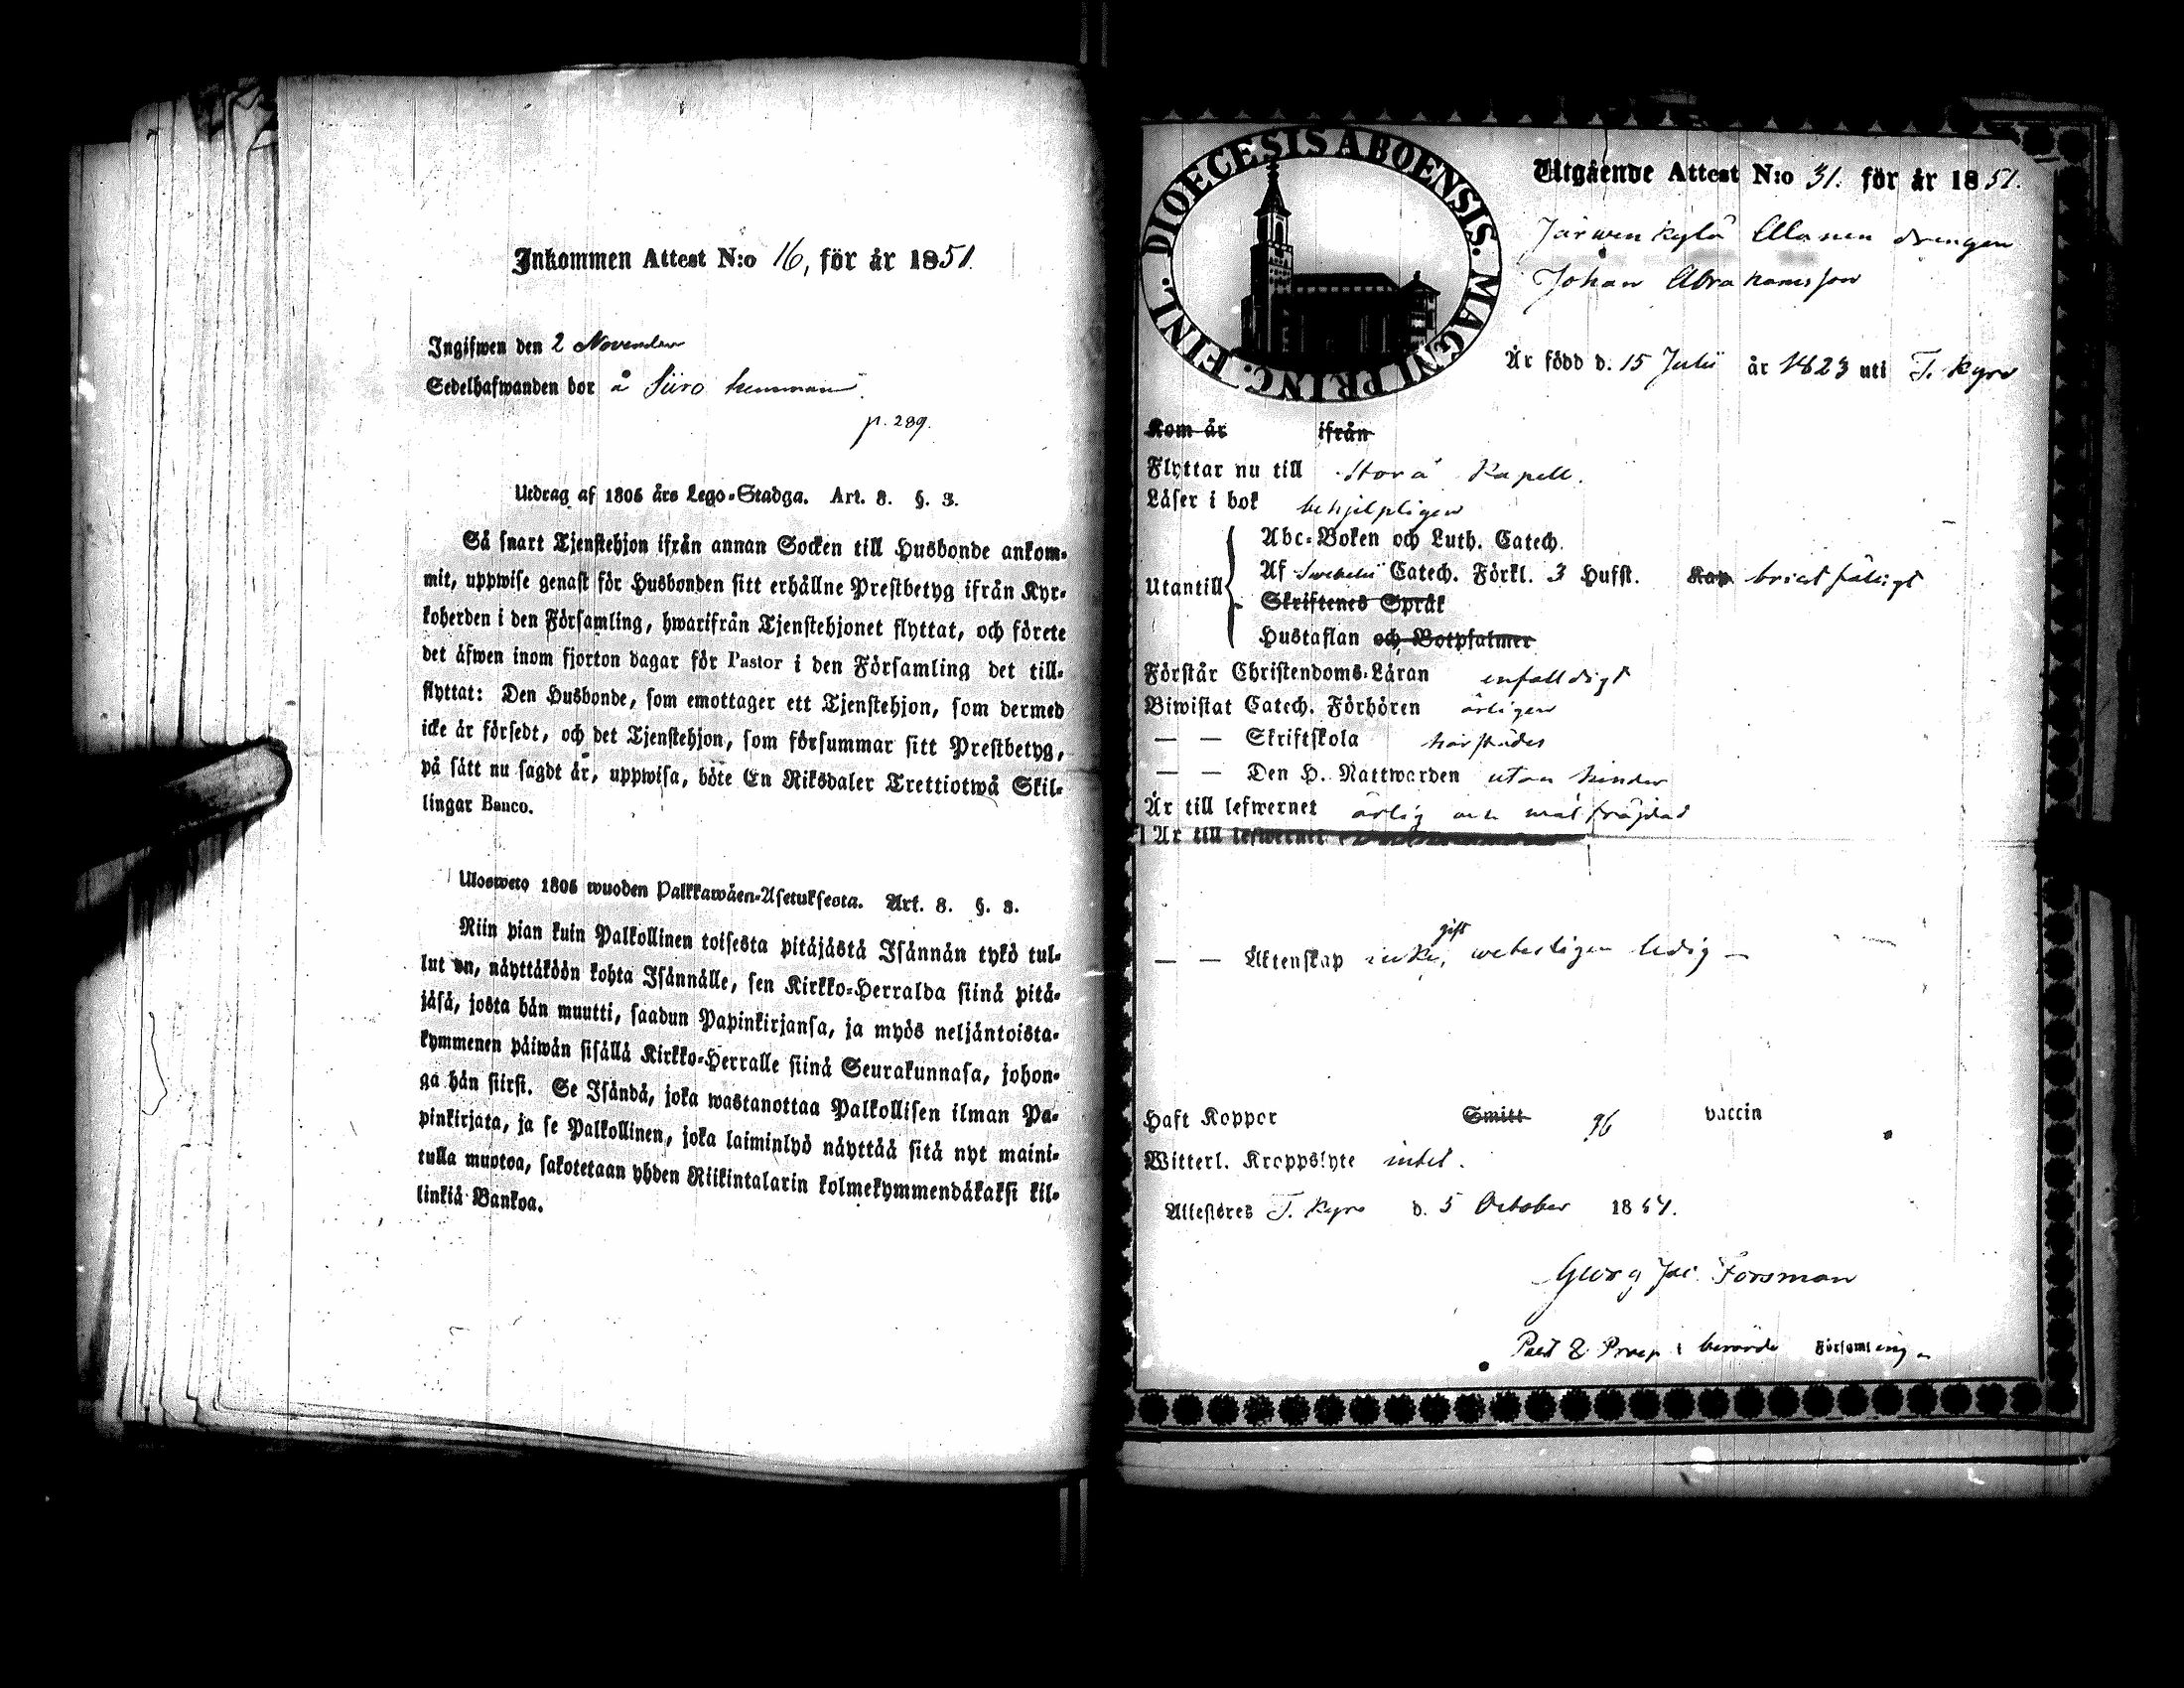 Inkommen Attest N:o 16, för år 1851.
Ingifwen den 2 November
Sedelhafwanden bor å Siuro hemman
p. 289.
Utdrag af 1805 års Lego-Stadga. Art. 8. §. 3.
Så snart Tjenstehjon ifrån annan Socken till Husbonde ankom-
mit, uppwise genast för Husbonden sitt erhållne Prestbetyg ifrån Kyr-
koherden i den Församling, hwarifrån Tjenstehjonet flyttat, och förete
det äfwen inom fjorton dagar för Pastor i den Församling det till-
flyttat: Den Husbonde, som emottager ett Tjenstehjon, som dermed
icke är försedt, och det Tjenstehjon, som försummar sitt Prestbetyg,
på sätt nu sagdt är, uppwisa, böte En Riksdaler Trettiotwå Skil-
lingar Banco.
Ulosweto 1805 wuoden Palkkawäen-Asetuksesta. Art. 8. §. 3.
Niin pian kuin Palkollinen toisesta pitäjästä Isännän tykö tul-
lut on, näyttäköön kohta Isännälle, sen Kirkko-Herralda siinä pitä-
jäsä, josta hän muutti, saadun Papinkirjansa, ja myös neljäntoista-
kymmenen päiwän sisällä Kirkko-Herralle siinä Seurakunnasa, johon-
ga hän siirsi. Se Isändä, joka wastanottaa Palkollisen ilman Pa-
pinkirjata, ja se Palkollinen, joka laiminlyö näyttää sitä nyt maini-
tulla muotoa, sakotetaan yhden Riikintalarin kolmekymmendäkaksi kil-
linkiä Bankoa.
DIOECESIS ABOENSIS. MAGNI PRINC. FINL.
Utgående Attest N:o 31. för år 1851.
Järwenkylä Alanen drengen
Johan Abrahamsson
Är född d. 15 Julii år 1823 uti T. Kyro
Kom år ifrån
Flyttar nu till Storå Kapell.
Läser i bok behjelpligen
Utantill
Abc-Boken och Luth. Catech.
Af Swebelii Catech. Förkl. 3 Hufst. Kap bristfäligt
Skriftenes Språk
Hustaflan och Botpsalmer
Förstår Christendoms-Läran enfalldigt
Biwistat Catech. Förhören årligen
— — Skriftskola härstädes
— — Den H. Nattwarden utan hinder
Är till lefwernet ärlig och wälfräjdad
Är till lefwernet
— — Äktenskap icke gift, weterligen ledig —
Haft Koppor Smitt vaccin
Witterl. Kroppslyte intet.
Attesteres T. Kyro d. 5 October 1851.
Georg Jac. Forsman
Past & Præp i berörde Församling